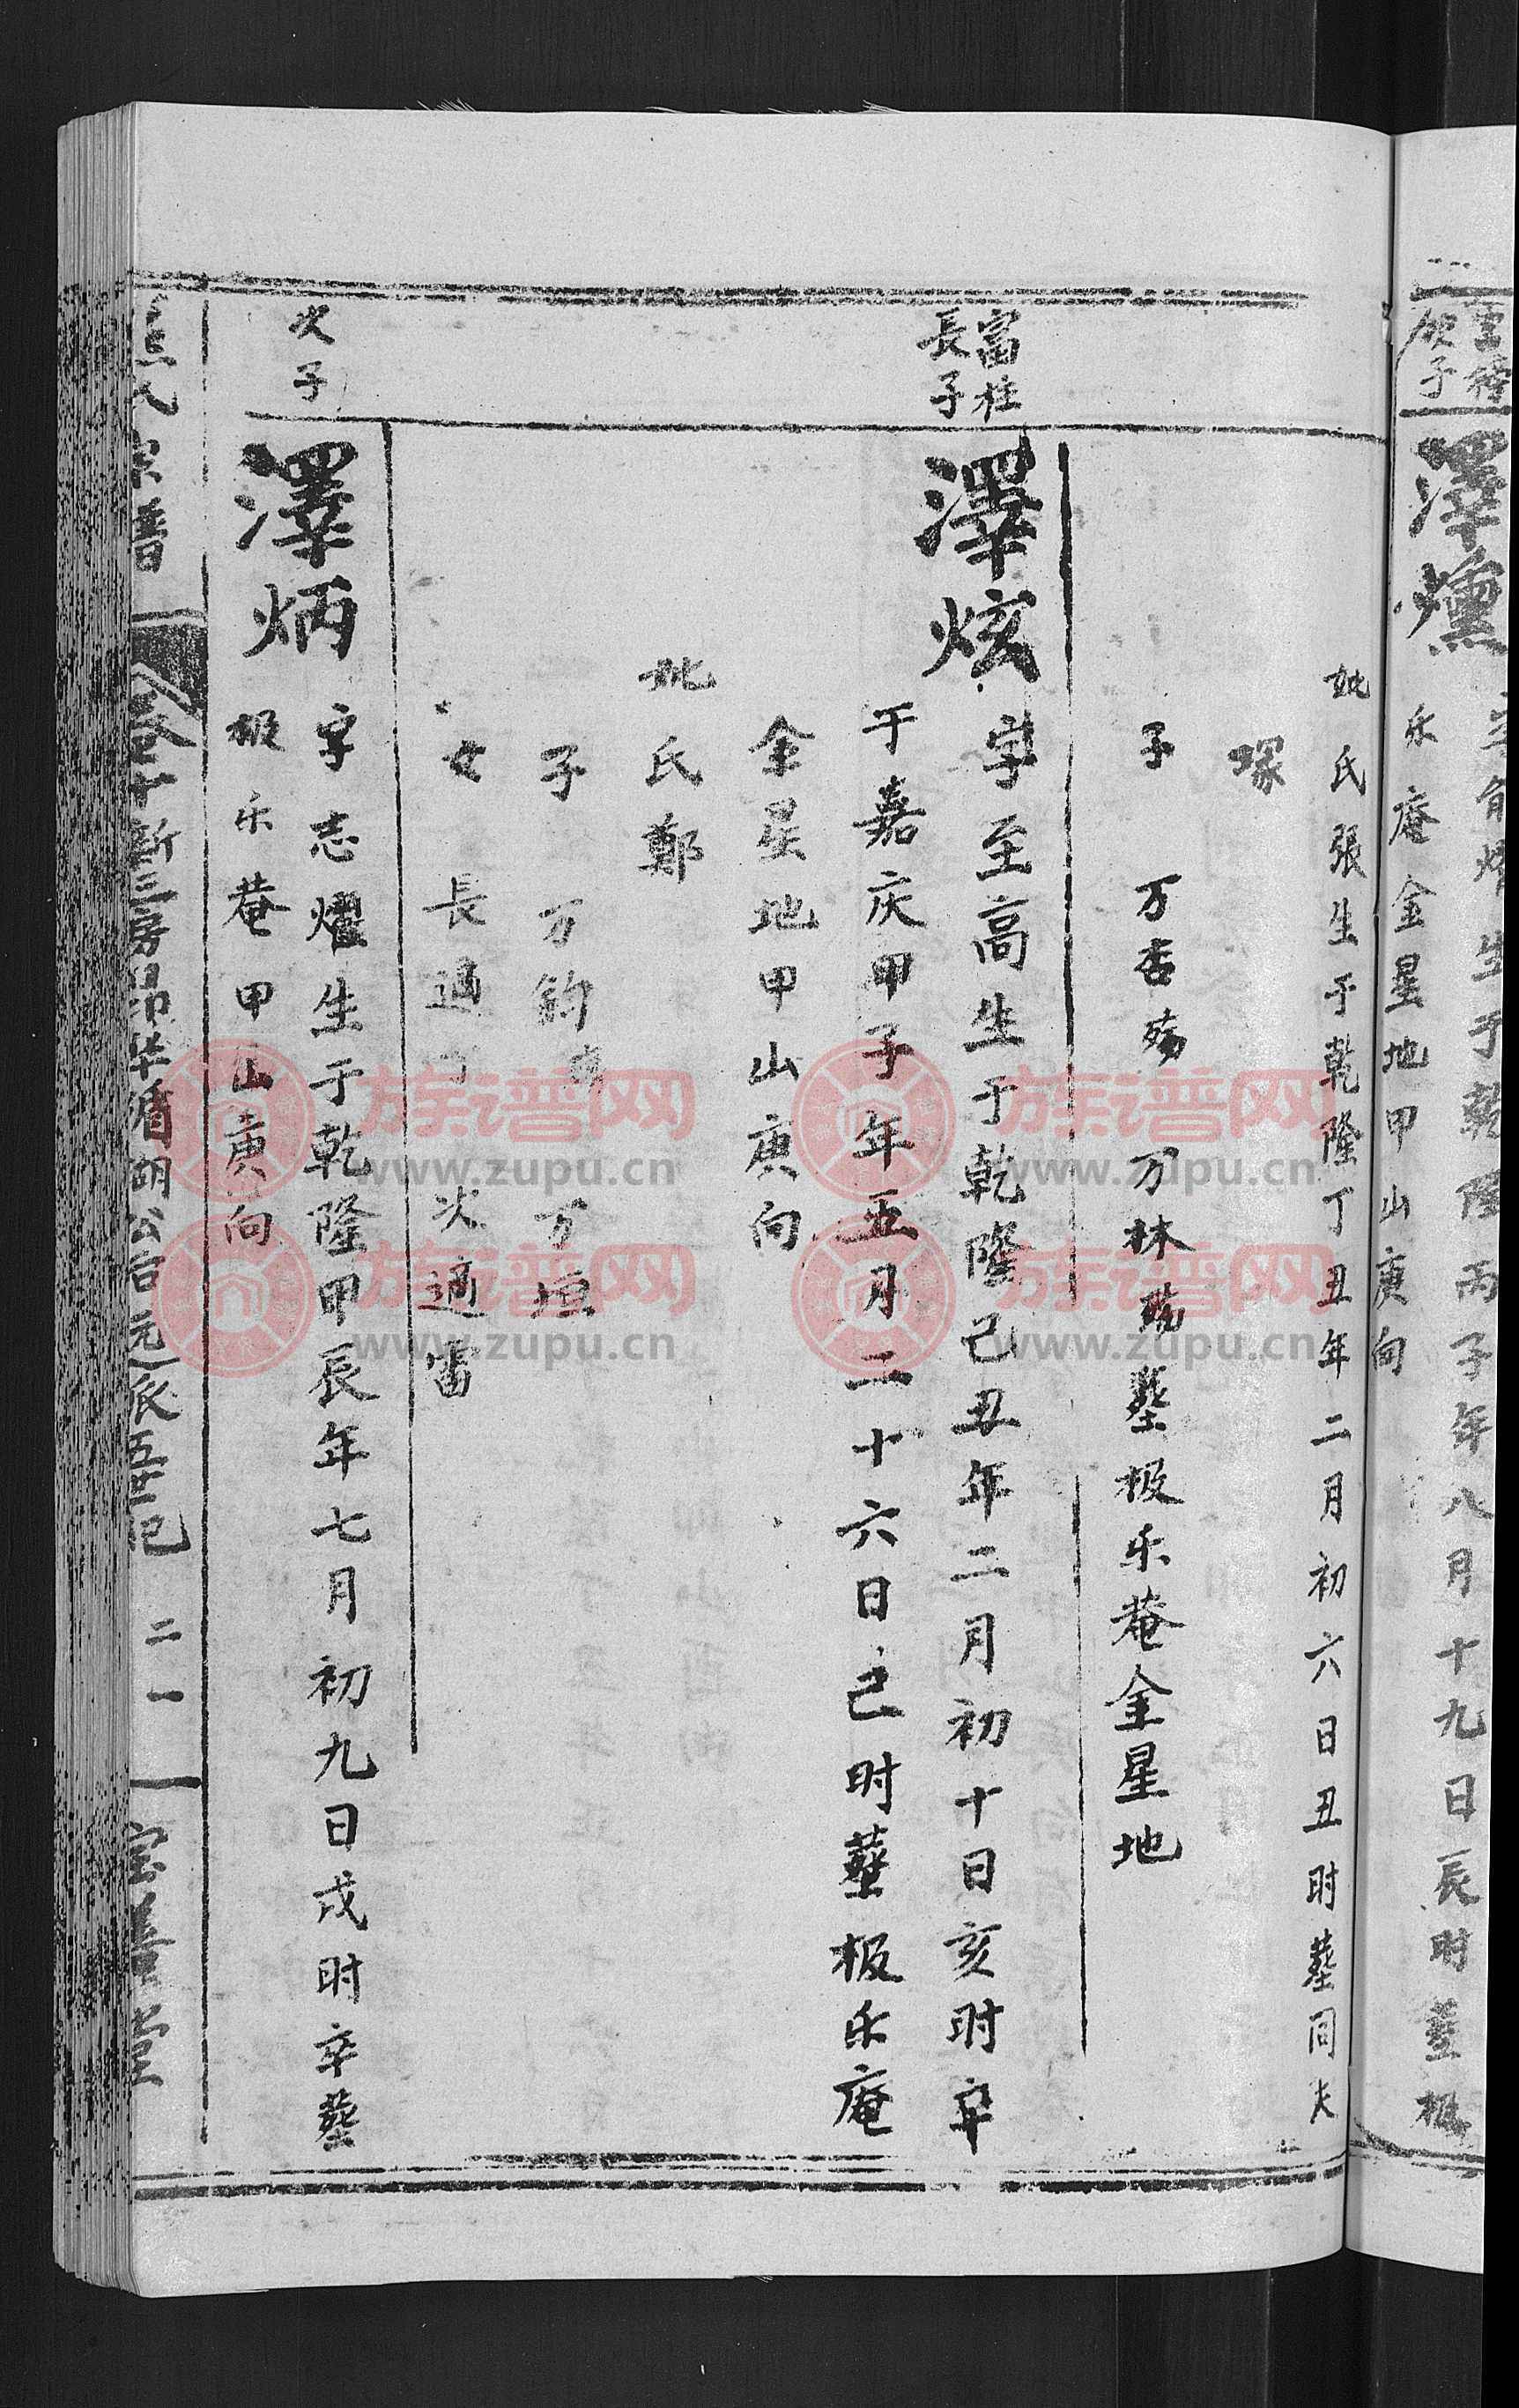 澤爋
生于乾隆丙子年八月十九日辰时塟极
乐庵金星地甲山庚向
妣氏張生于乾隆丁丑年二月初六日丑时塟同夫
塚
子 万杏殇 万林殇塟极乐菴金星地
富柱
長子
澤炫
字至高生于乾隆己丑年二月初十日亥时卒
于嘉庆甲子年五月二十六日己时塟极乐庵
金星地甲山庚向
妣氏鄭
子 万鈞 万垣
女 長適 次適雷
次子
澤炳
字志燿生于乾隆甲辰年七月初九日戌时卒塟
极乐菴甲山庚向
氏宗譜
卷十新三房
公言元派五世紀
二一
宝善堂
族谱网
www.zupu.cn
族谱网
www.zupu.cn
族谱网
www.zupu.cn
族谱网
www.zupu.cn